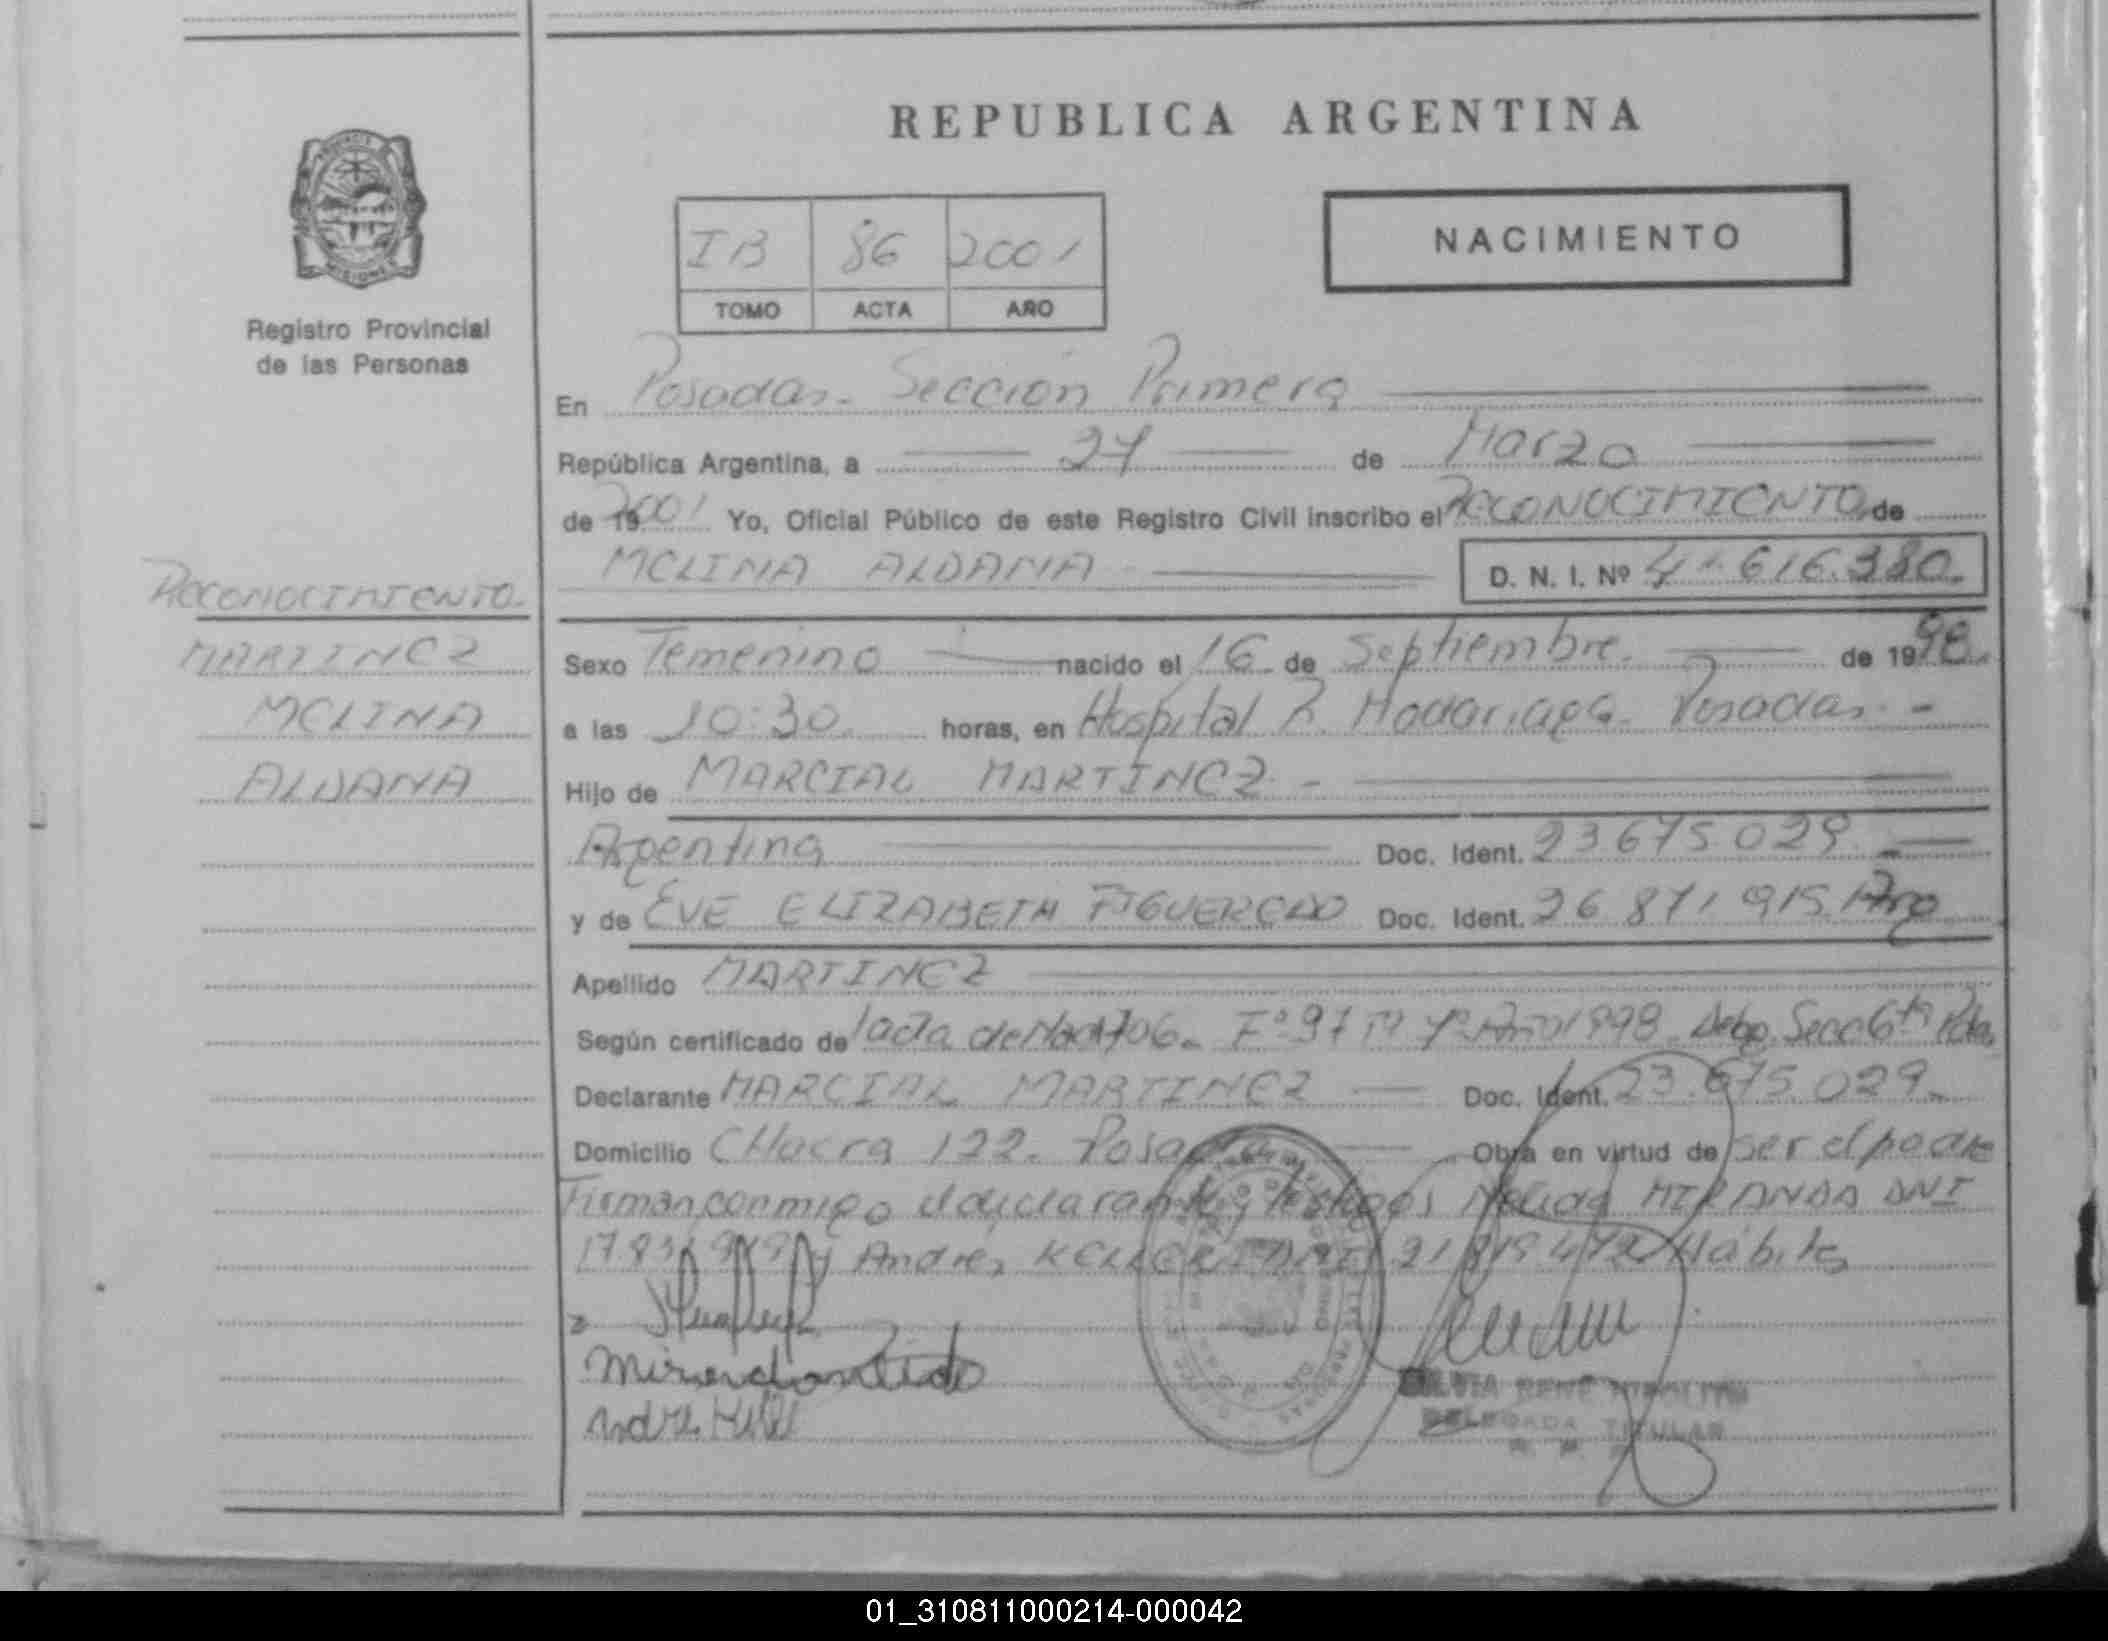 REPUBLICA ARGENTINA
PROVINCIA
MISIONES
Registro Provincial
de las Personas
IB 86 2001
TOMO ACTA AÑO
NACIMIENTO
En Posadas - Sección Primera
República Argentina, a 27 de Marzo
de 192001 Yo, Oficial Público de este Registro Civil inscribo el RECONOCIMIENTO de
MELINA ALDANA D. N. I. Nº 41.616.380.
RECONOCIMIENTO.
MARTINEZ
MELINA
ALDANA
Sexo Femenino nacido el 16 de Septiembre. de 1998.
a las 10:30. horas, en Hospital R. Madariaga. Posadas. -
Hijo de MARCIAL MARTINEZ. -
Argentina Doc. Ident. 23675.029.
y de EVE ELIZABETH FIGUEREDO Doc. Ident. 26 871 915 Arg
Apellido MARTINEZ
Según certificado de acta de Fº 97 Tº Año 1998 Secc 6ta
Declarante MARCIAL MARTINEZ Doc. Ident. 23.675.029.
Domicilio CHacra 122. Posadas Obra en virtud de ser el padre
Firman conmigo el declarante y testigos Nelida MIRANDA DNI
y Andrés KELLER DNI Hábiles
SILVIA RENE HIPOLITO
DELEGADA TITULAR
01_310811000214-000042